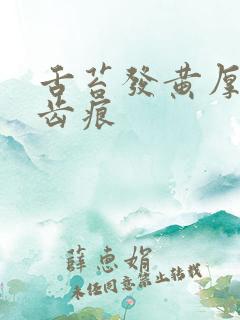 舌苔發黄厚
齿痕
薛惠娟
未经同意禁止转载